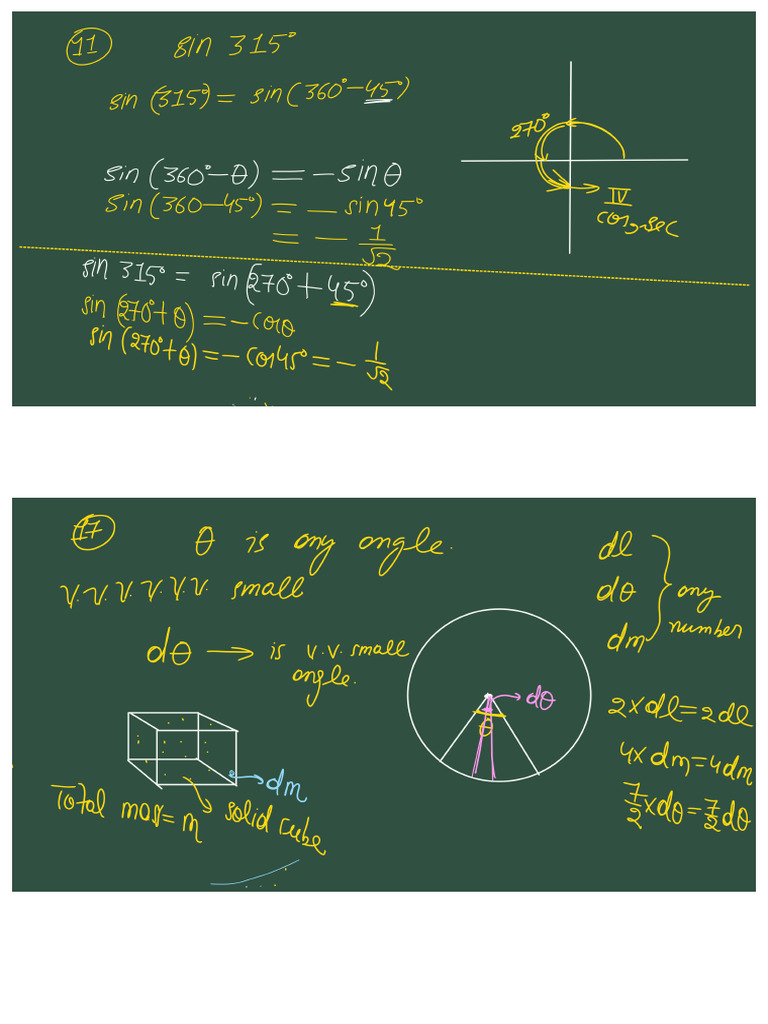 11 sin 315°
sin (315°) = sin (360° - 45°)
sin (360° - θ) = - sin θ
sin (360 - 45°) = - sin 45°
= - 1/√2
270°
IV
cos, sec
sin 315° = sin (270° + 45°)
sin (270° + θ) = - cos θ
sin (270° + θ) = - cos 45° = - 1/√2
17 θ is any angle.
v. v. v. v. v. v. small
dθ → is v.v. small
angle.
dθ
θ
dl
dθ
dm
any
number
2 x dl = 2dl
4 x dm = 4dm
7/2 x dθ = 7/2 dθ
dm
Total mass = m
solid cube